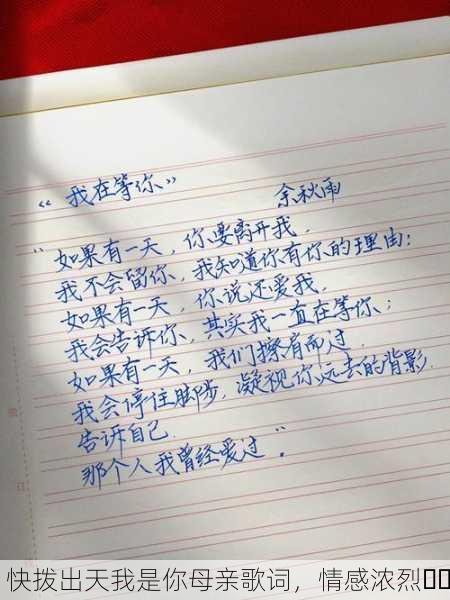 “我在等你”
余秋雨
“如果有一天，你要离开我，
我不会留你，我知道你有你的理由；
如果有一天，你说还爱我，
我会告诉你，其实我一直在等你；
如果有一天，我们擦肩而过，
我会停住脚步，凝视你远去的背影，
告诉自己，
那个人我曾经爱过。”
快拨出天我是你母亲歌词，情感浓烈